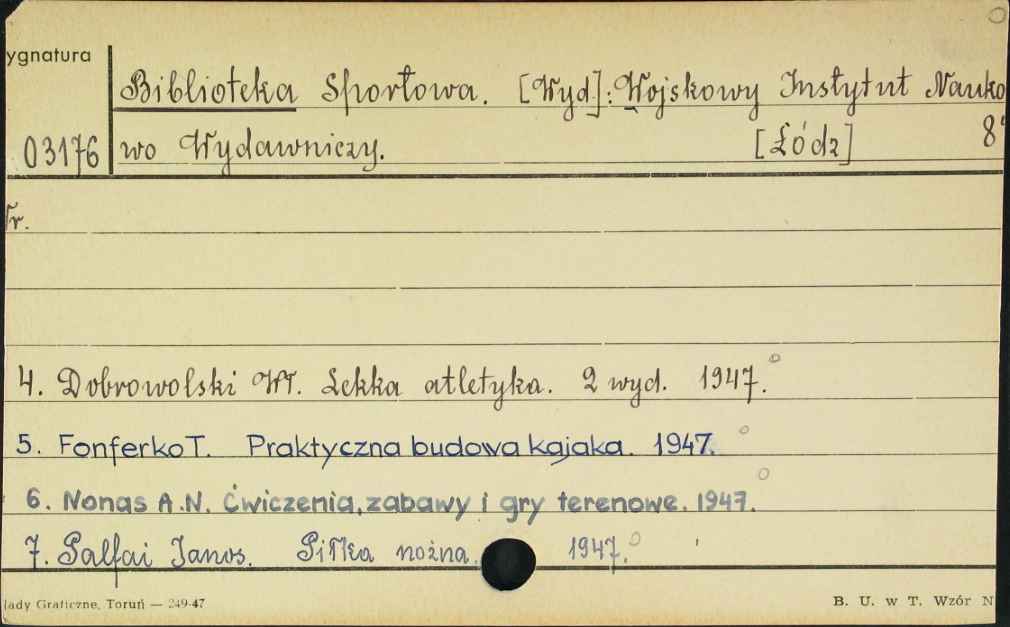 ygnatura
Biblioteka Sportowa. [Wyd]: Wojskowy Instytut Nauko
03176 wo Wydawniczy. [Łódz] 8°
Tr.
4. Dobrowolski Wł. Lekka atletyka. 2 wyd. 1947.
5. Fonferko T. Praktyczna budowa kajaka. 1947.
6. Nonas A.N. Ćwiczenia, zabawy i gry terenowe. 1947.
7. Palfai Janos. Piłka nożna. 1947.
łady Graficzne, Toruń — 249-47
B. U. w T. Wzór N